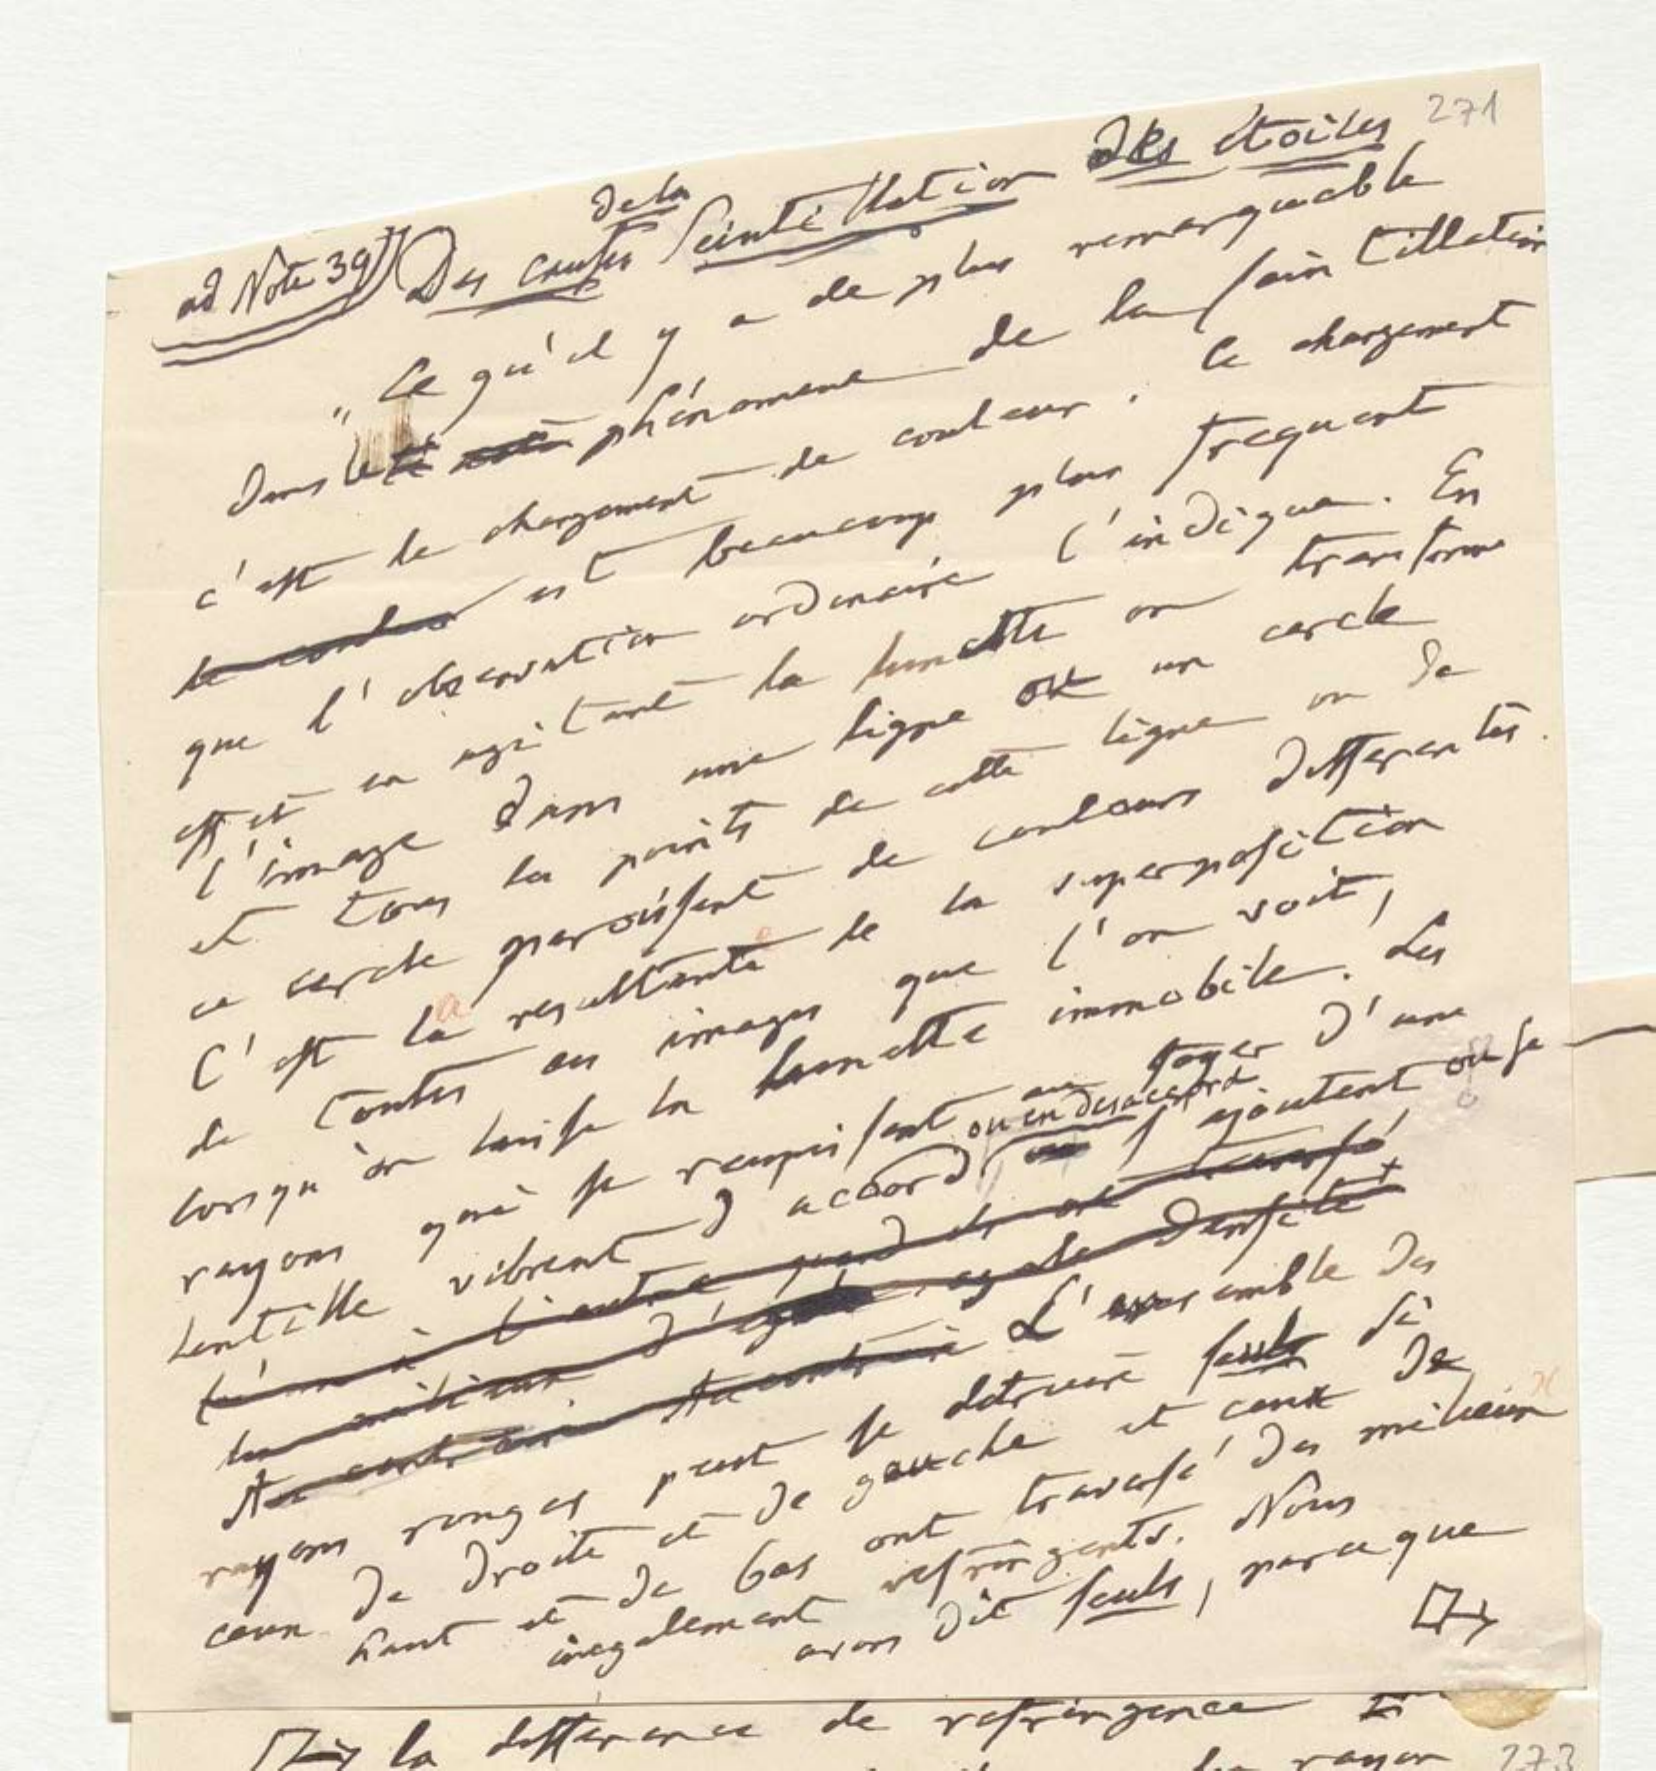 271
ad Note 39) Des causes de la Scintillation des étoiles
„Ce qu'il y a de plus remarquable
dans le phénomene de la scintillation
c'est le changement de couleur. Ce changement
est beaucoup plus frequent
que l'observation ordinaire l'indique. En
effet en agitant la lunette on transforme
l'image dans une ligne ou un cercle
et tous les points de cette ligne ou de
ce cercle paroissent de couleurs differentes.
C'est la resultante de la superposition
de toutes ces images que l'on voit,
lorsqu'on laisse la lunette immobile. Les
rayons qui se reunissent au foyer d'une
lentille vibrent d'accord ou en desaccord s'ajoutent ou se
l'un à l'autre quand ils ont traversé
les milieux d'égale densité
Au contraire Au contraire L'ensemble des
rayons rouges peut se detruire seuls si
ceux de droite et de gauche et ceux de
haut et de bas ont traversé des milieux
inegalement refringents. Nous
avons dit seuls, parceque
la differance de refringence
rayon 273